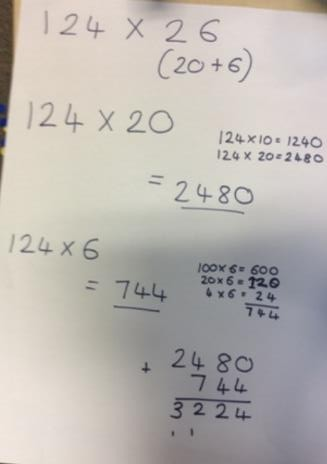 124 × 26
(20+6)
124 × 20
124×10=1240
124×20=2480
= 2480
124×6
100×6=600
20×6=120
4×6=24
744
= 744
2480
+ 744
3224
1 1